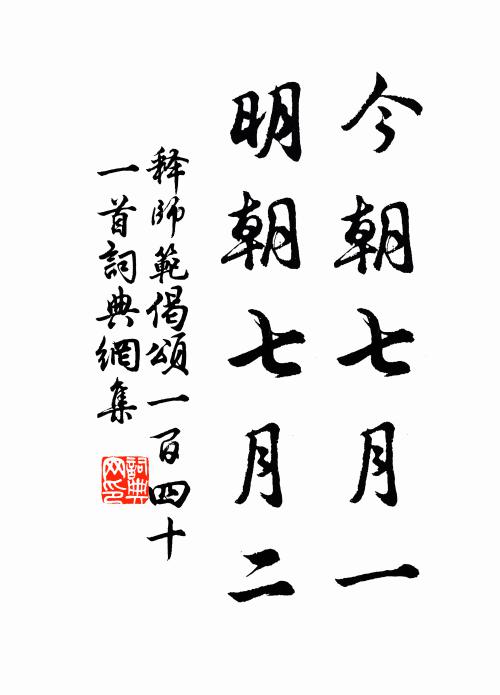 今朝七月一
明朝七月二
释師範偈頌一百四十
一首詞典網集
詞典网印